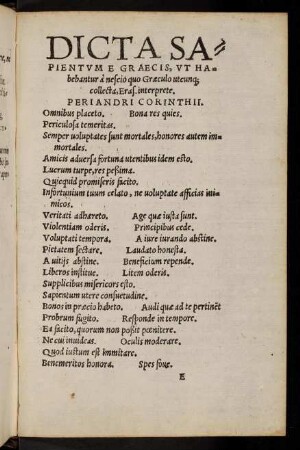 DICTA SA⸗
PIENTVM E GRAECIS, VT HA⸗
bebantur à nescio quo Græculo utcunq;
collecta, Eras. interprete.
PERIANDRI CORINTHII.
Omnibus placeto. Bona res quies.
Periculosa temeritas.
Semper uoluptates sunt mortales, honores autem im⸗
mortales.
Amicis aduersa fortuna utentibus idem esto.
Lucrum turpe, res pessima.
Quicquid promiseris facito.
Infortunium tuum celato, ne uoluptate afficias ini⸗
micos.
Veritati adhæreto. Age quæ iusta sunt.
Violentiam oderis. Principibus cede.
Voluptati tempora. A iure iurando abstine.
Pietatem sectare. Laudato honesta.
A uitijs abstine. Beneficium repende.
Liberos institue. Litem oderis.
Supplicibus misericors esto.
Sapientum utere consuetudine.
Bonos in præcio habeto. Audi quæ ad te pertinēt
Probrum fugito. Responde in tempore.
Ea facito, quorum non poßis pœnitere.
Ne cui inuideas. Oculis moderare.
Quod iustum est immitare.
Benemeritos honora. Spes foue.
E